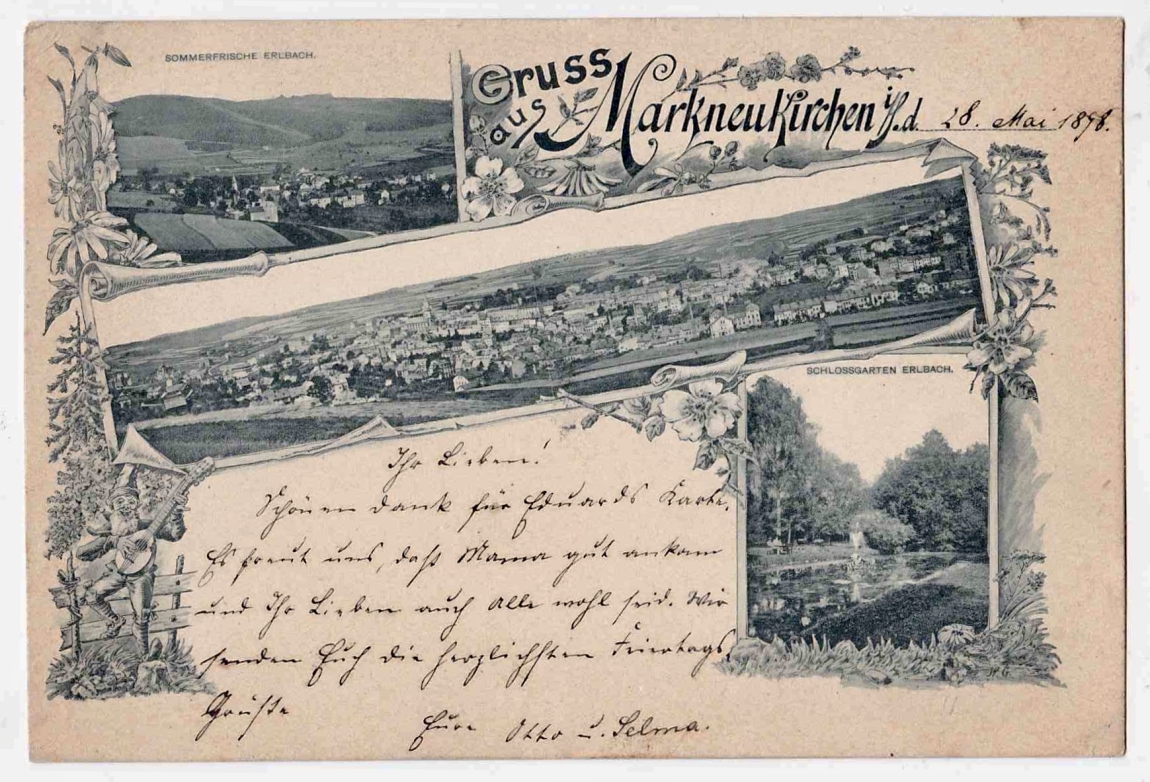 SOMMERFRISCHE ERLBACH.
Gruss
aus Markneukirchen i/S. d. 28. Mai 1898.
SCHLOSSGARTEN ERLBACH.
Ihr Lieben!
Schönen Dank für Eduards Karte.
Es freut uns, daß Mama gut ankam
und Ihr Lieben auch Alle wohl seid. Wir
senden Euch die herzlichsten Feiertags
Grüße
Eure Otto u. Selma.